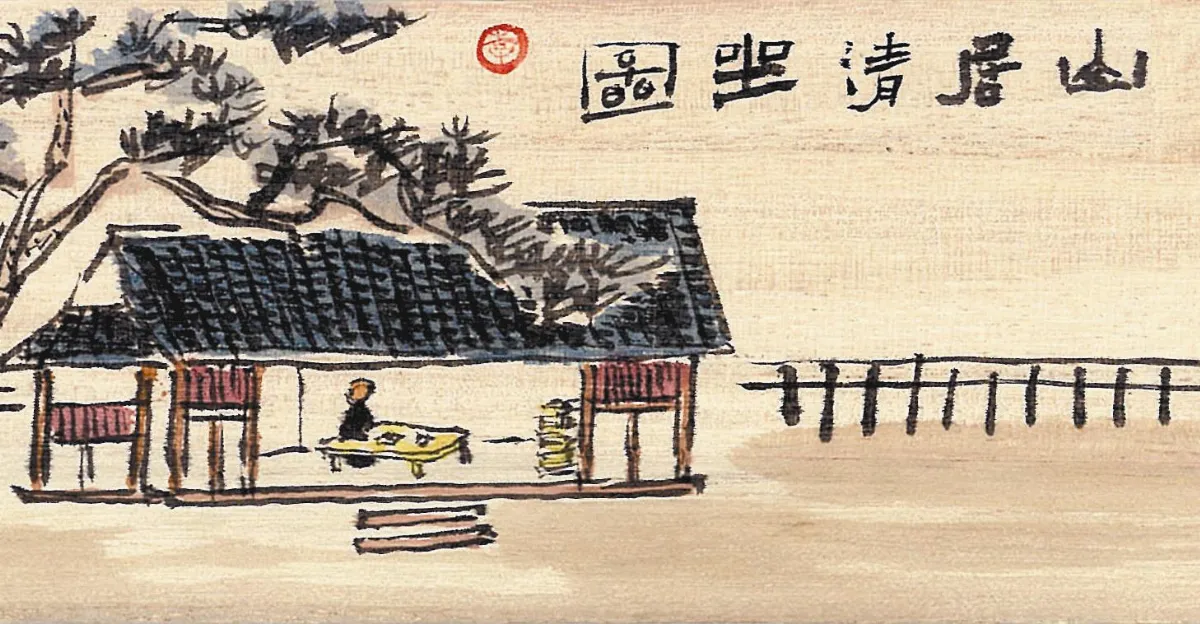 山居清坐圖